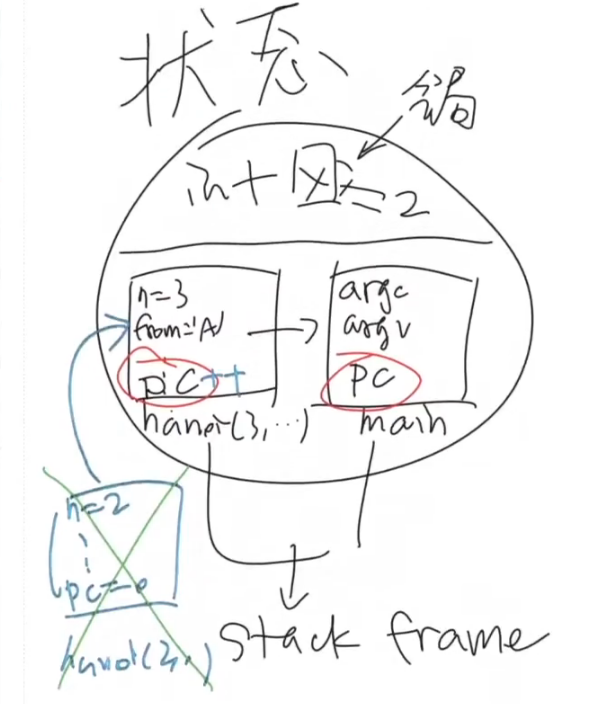 状态
堆
int x = 2
n=3
from='A'
pc++
hanoi(3,...)
argc
argv
pc
main
n=2
pc=0
hanoi(2,.)
stack frame